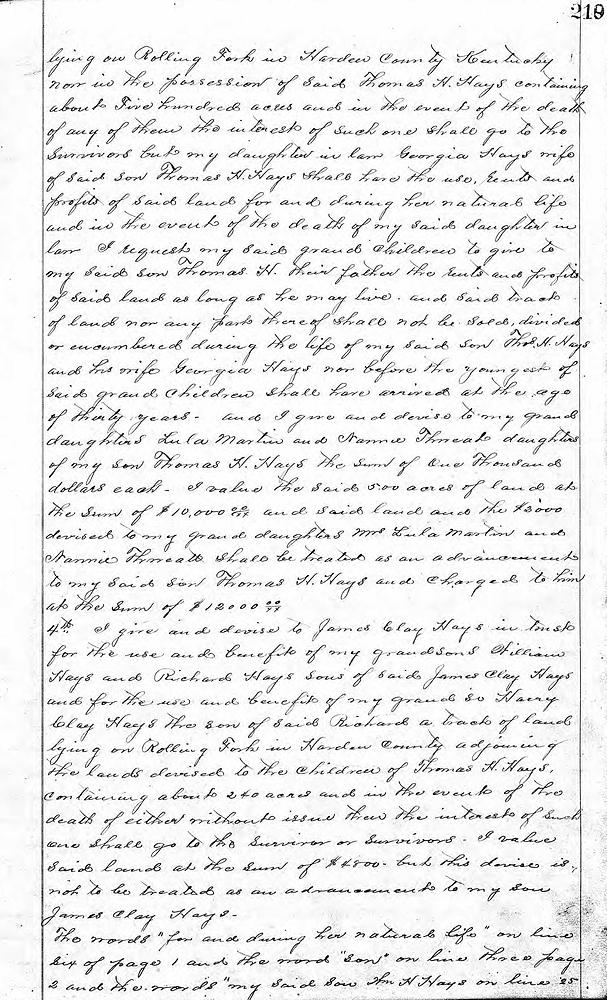 219
lying on Rolling Fork in Harden County Kentucky
now in the possession of said Thomas H. Hays containing
about Five hundred acres and in the event of the death
of any of them the interest of such one shall go to the
survivors but my daughter in law Georgia Hays wife
of said son Thomas H. Hays shall have the use, rents and
profits of said land for and during her natural life
and in the event of the death of my said daughter in
law I request my said grand children to give to
my said son Thomas H. their father the rents and profits
of said land as long as he may live. and said tract
of land nor any part thereof shall not be sold, divided
or encumbered during the life of my said son Thos. H. Hays
and his wife Georgia Hays nor before the youngest of
said grand children shall have arrived at the age
of thirty years - and I give and devise to my grand
daughters Lula Martin and Nannie Threat daughters
of my son Thomas H. Hays the sum of One Thousand
dollars each - I value the said 500 acres of land at
the sum of $10,000 and said land and the
devised to my grand daughters Mrs Lula Martin and
Nannie Threatt shall be treated as an advancement
to my said son Thomas H. Hays and charged to him
at the sum of $12000
4th I give and devise to James Clay Hays in trust
for the use and benefit of my grandsons William
Hays and Richard Hays sons of said James Clay Hays
and for the use and benefit of my grand so Harry
Clay Hays the son of said Richard a tract of land
lying on Rolling Fork in Harden County adjoining
the lands devised to the children of Thomas H. Hays,
containing about 240 acres and in the event of the
death of either without issue then the interest of such
one shall go to the survivor or survivors. I value
said land at the sum of $4800 - but this devise is
not to be treated as an advancement to my son
James Clay Hays -
The words "for and during her natural life" on line
six of page 1 and the word "son" on line three page
2 and the words "my said son Wm H Hays on line 25